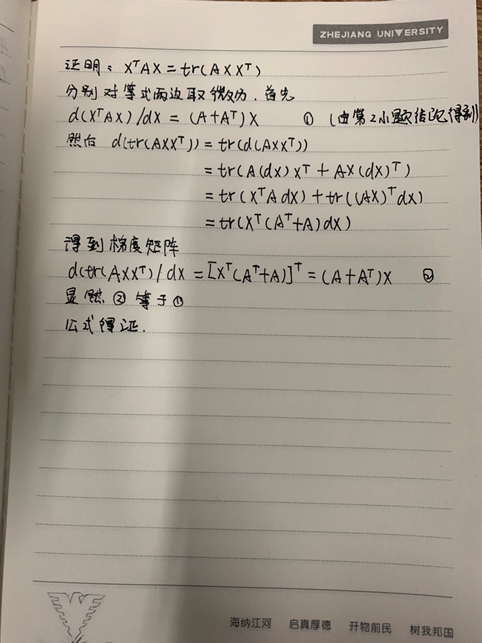 ZHEJIANG UNIVERSITY
证明: X^TAX = tr(AXX^T)
分别对等式两边取微分.首先
d(X^TAX)/dX = (A+A^T)X ① (由第2小题结论得到)
然后 d(tr(AXX^T)) = tr(d(AXX^T))
= tr(A(dX)X^T + AX(dX)^T)
= tr(X^TAdX) + tr((AX)^TdX)
= tr(X^T(A^T+A)dX)
得到梯度矩阵
d(tr(AXX^T)/dX = [X^T(A^T+A)]^T = (A+A^T)X ②
显然 ② 等于 ①
公式得证.
海纳江河 启真厚德 开物前民 树我邦国